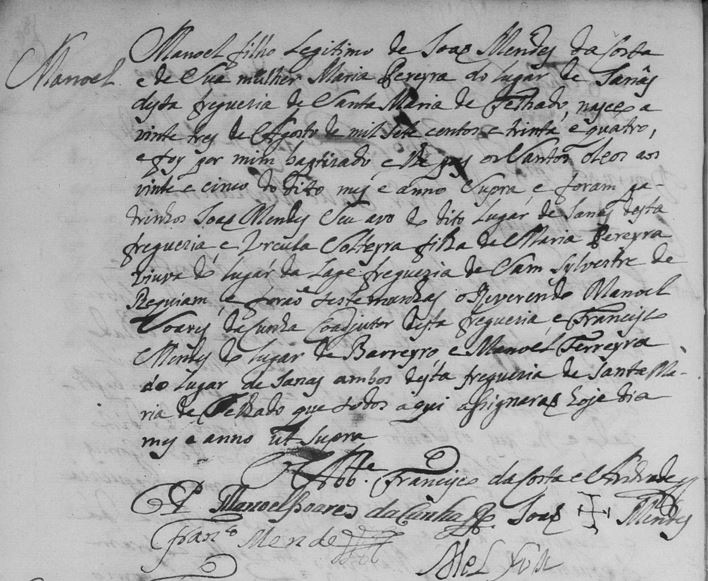 Manoel
Manoel filho Legitimo de Joaõ Mendes da Costa
e de Sua mulher Maria Pereyra do lugar de Sanas
desta freguezia de Santa Maria de Telhado, nasceo a
vinte tres de Agosto de mil Sete centos e trinta e quatro,
e foy por mim baptizado e lhe pus os Santos oleos aos
vinte e cinco do dito mes e anno Supra, e foram pa-
drinhos Joaõ Mendes Seu avo do dito Lugar de Sanas desta
freguezia e Vrcula Solteyra filha de Maria Pereyra
viuva do lugar da Lage freguezia de Sam Sylvestre de
Requiam, e foraõ testemunhas o Reverendo Manoel
Soares da Cunha Coadjutor desta freguezia e Francisco
Mendes do lugar de Barreyro e Manoel Ferreyra
do lugar de Sanas ambos desta freguezia de Santa Ma-
ria de Telhado que todos aqui asignaraõ hoje dia
mes e anno ut Supra
O Abb.e Francisco da Costa e Andrade
P Manoel Soares da Cunha Joaõ Mendes
Fran.co Mendes